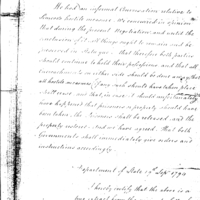 We held an informal Conversation relative to
hostile measures. We concurred in opinion
that during the present Negotiation and until the
conclusion of it all things ought to remain and be
preserved in Statu quo - that therefore both parties
should continue to hold their possessions and that all
encroachments on either side should be done away that
all hostile measures if any such should have taken place
shall cease and that in case it should unfortunately
have happened that prisoners or property should have
been taken, the Prisoners shall be released and the
property restored. And we have agreed That both
Governments shall immediately give orders and
instructions accordingly.
Department of State 19th Sept 1794
I hereby certify that the above is a
true extract from the